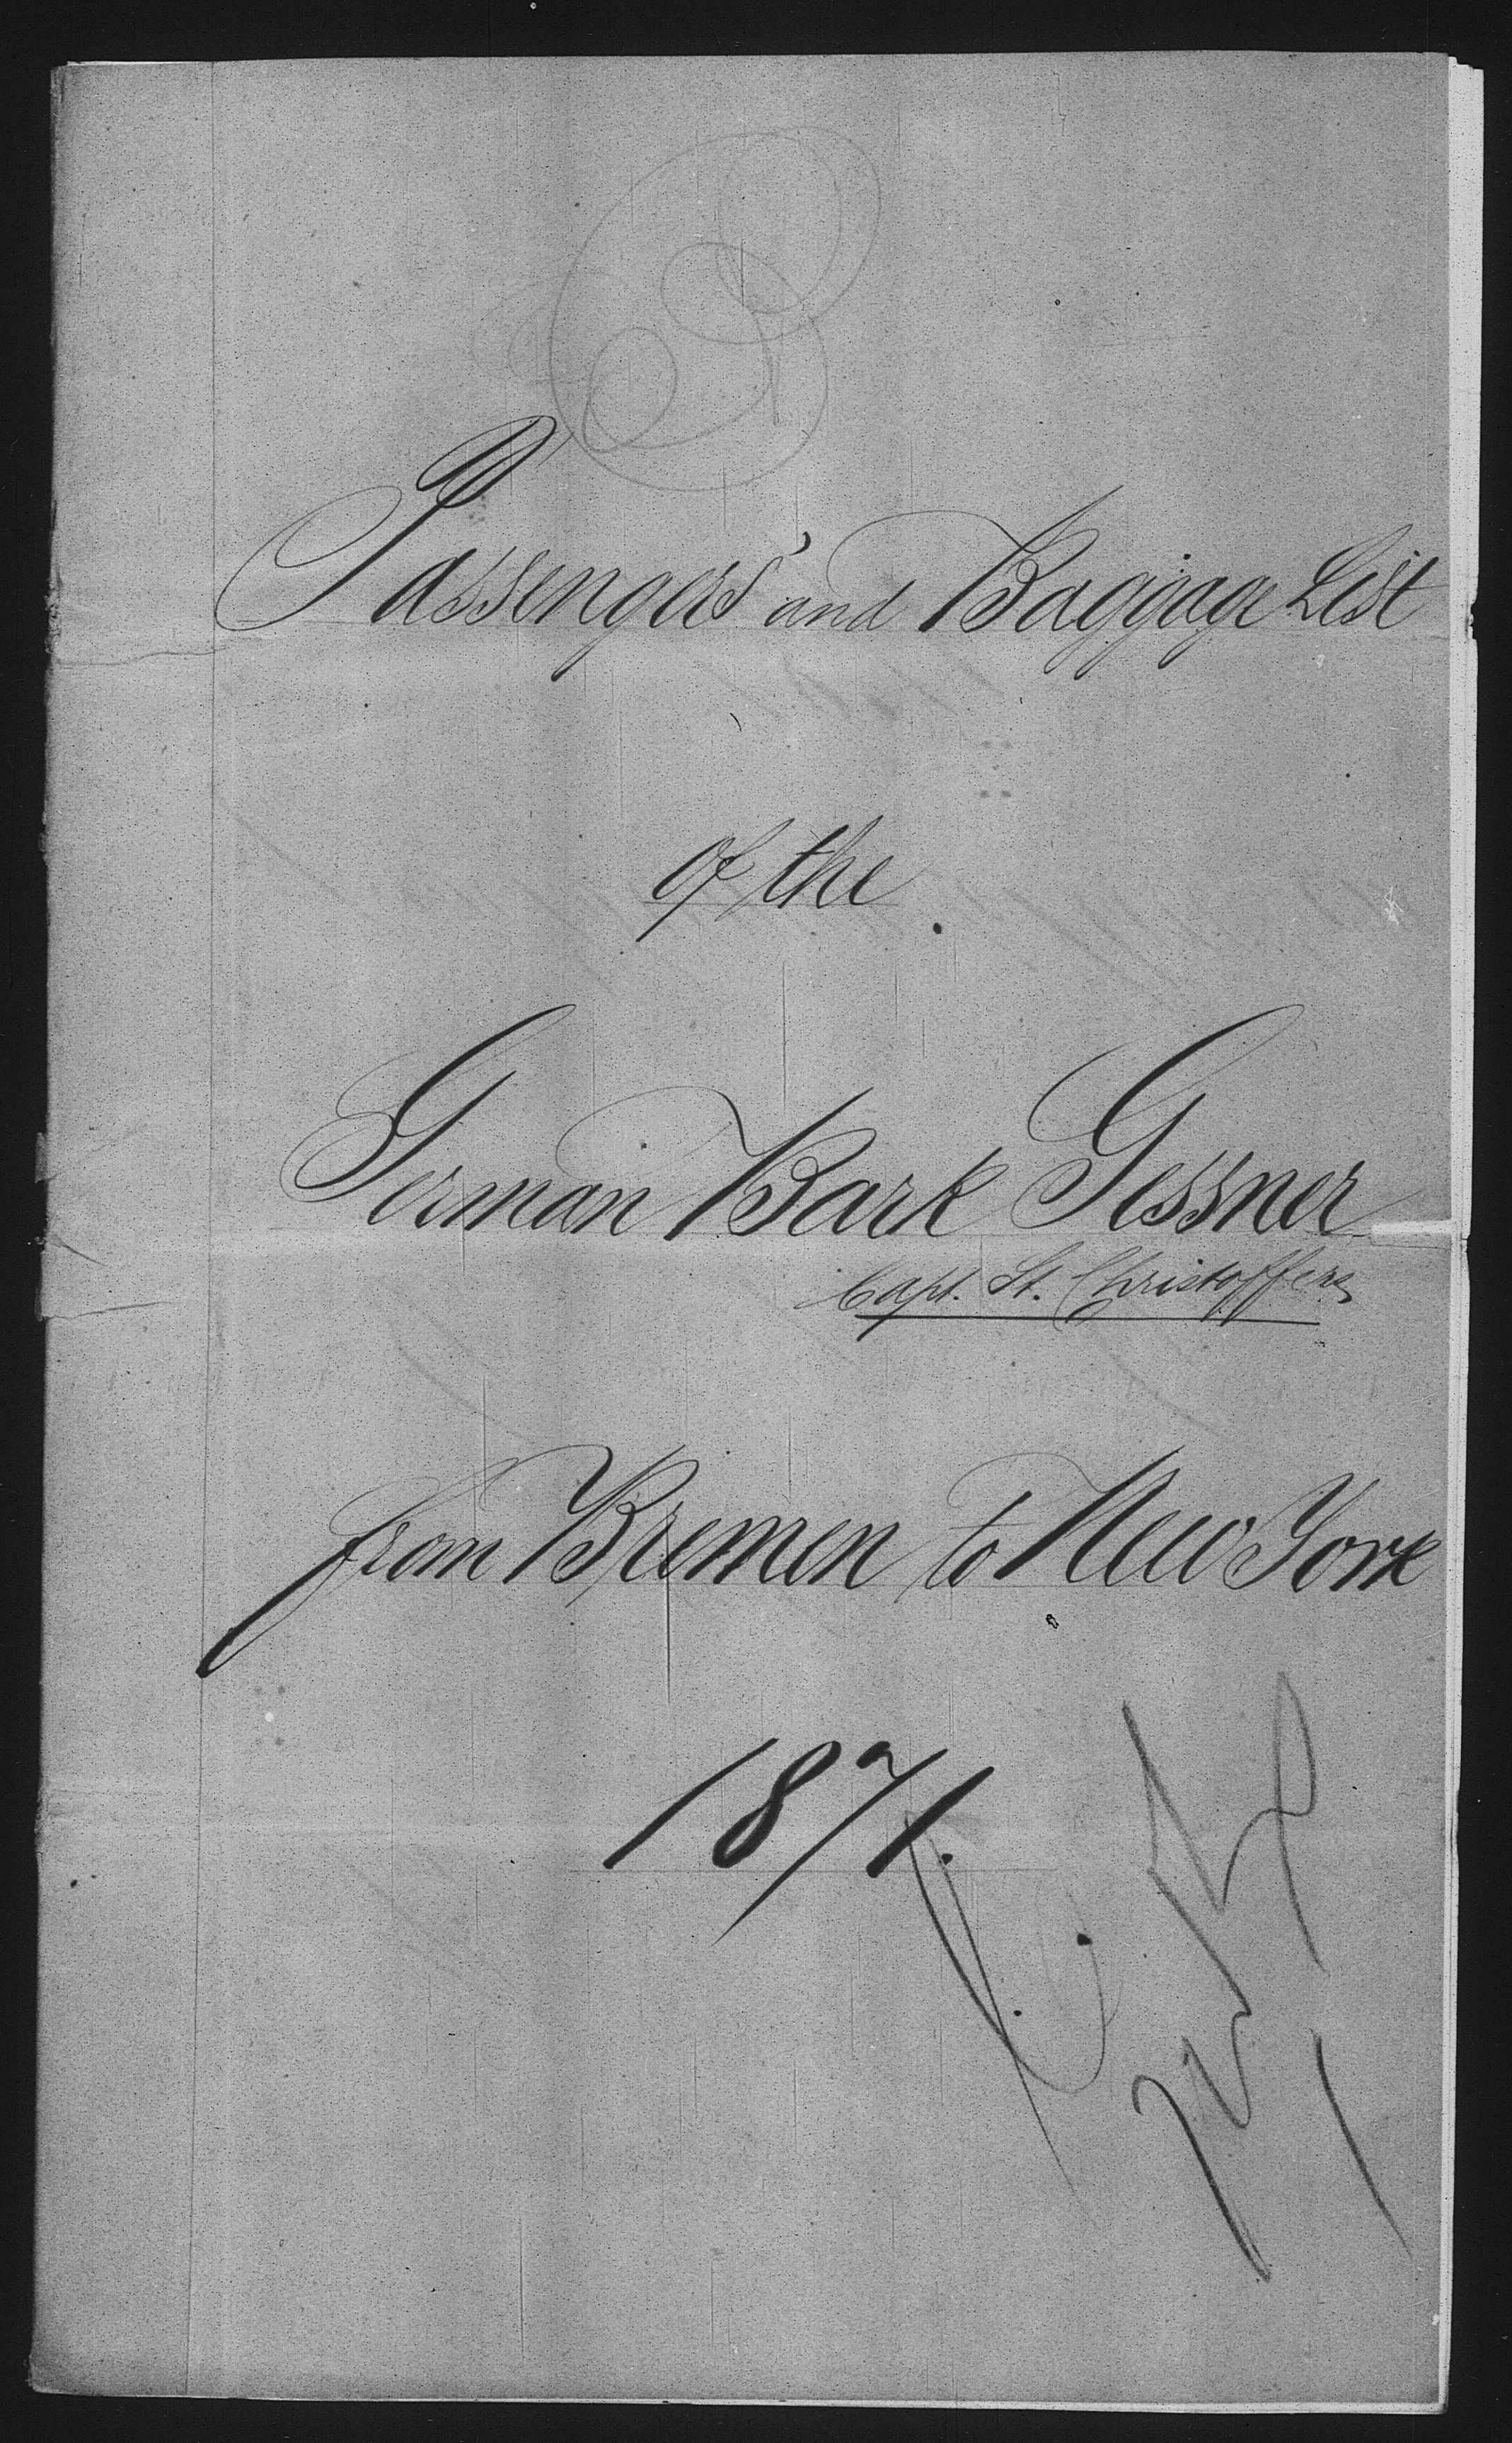 Passengers' and Baggage List
of the
German Bark Gessner
Capt. St. Christoffers
from Bremen to New York
1871.